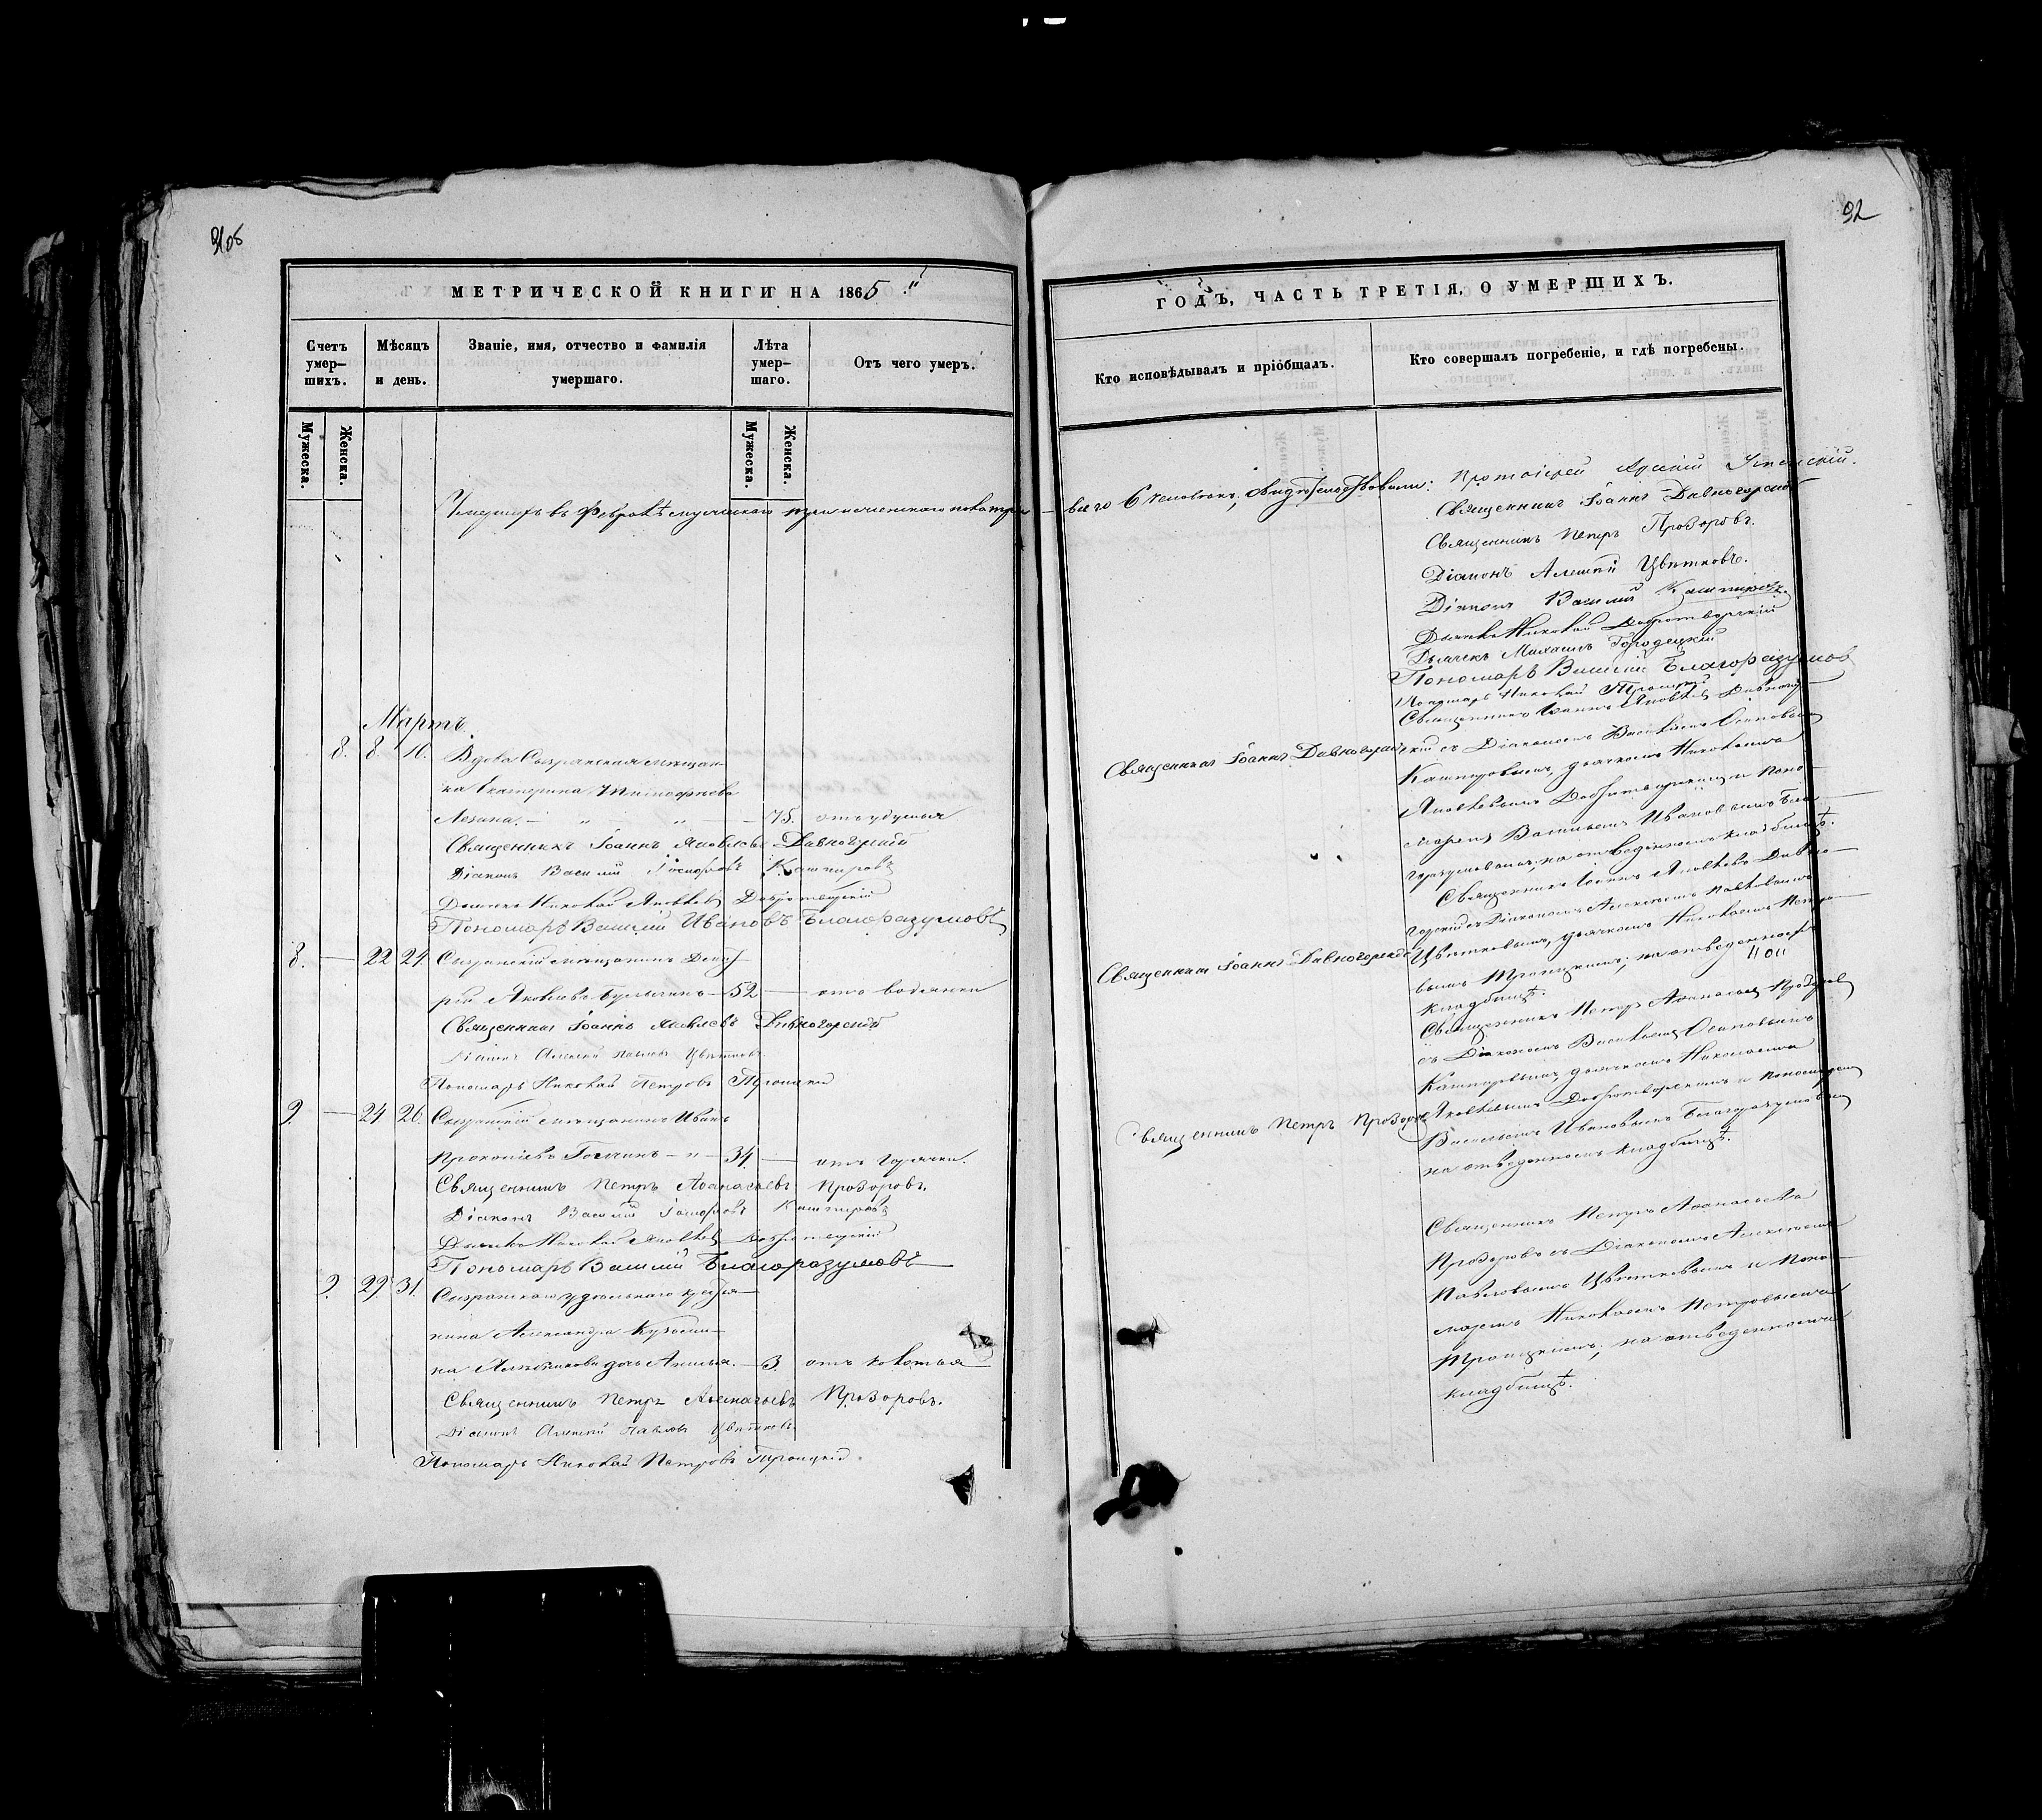 91об
МЕТРИЧЕСКОЙ КНИГИ НА 1865
Счетъ умер-шихъ.
Мѣсяцъ и день.
Званіе, имя, отчество и фамилія умершаго.
Лѣта умер-шаго.
Отъ чего умеръ.
Мужеска.
Женска.
Мужеска.
Женска.
Умершихъ въ Февралѣ мужескаго
Мартъ.
8. 8. 10. Вдова Сызранская мѣщан-
ка Екатерина Тимофѣева
75.
Священникъ Іоаннъ Яковлевъ Дивногорскій
Діаконъ Василій Іосифовъ Каштировъ
Дьячекъ Николай Яковлевъ Добротворскій
Пономарь Василій Ивановъ Благоразумовъ
8. — 22 24. Сызранскій мѣщанинъ Дмит-
рій Яковлевъ — 52 — отъ водянки
Священникъ Іоаннъ Яковлевъ Дивногорскій
Діаконъ Алексій Павловъ Цвѣтковъ
Пономарь Николай Петровъ Троицкій
9. — 24. 26. Сызранскій мѣщанинъ Иванъ
Прокопіевъ — 34. — отъ горячки.
Священникъ Петръ Аѳанасьевъ Прозоровъ.
Діаконъ Василій Іосифовъ Каштировъ
Дьячекъ Николай Яковлевъ Добротворскій
Пономарь Василій Благоразумовъ
9. 29. 31. Сызранскаго удѣльнаго крестья-
нина Александра Кузьми-
на дочь — 3.
Священникъ Петръ Аѳанасьевъ Прозоровъ.
Діаконъ Алексій Павловъ Цвѣтковъ
Пономарь Николай Петровъ Троицкій.
92
ГОДЪ, ЧАСТЬ ТРЕТІЯ, О УМЕРШИХЪ.
Кто исповѣдывалъ и пріобщалъ.
Кто совершалъ погребеніе, и гдѣ погребены.
всего 6 человѣкъ;
Протоіерей Арсеній Успенскій.
Священникъ Іоаннъ Дивногорскій
Священникъ Петръ Прозоровъ.
Діаконъ Алексій Цвѣтковъ.
Діаконъ Василій Каштировъ.
Дьячекъ Николай Добротворскій
Дьячекъ Михаилъ Городецкій
Пономарь Василій Благоразумовъ
Пономарь Николай Троицкій
Священникъ Іоаннъ Яковлевъ Дивного-
Священникъ Іоаннъ Дивногорскій
рскій съ Діакономъ Василіемъ Осиповымъ
Каштировымъ, дьячкомъ Николаемъ
Яковлевымъ Добротворскимъ и Поно-
маремъ Василіемъ Ивановымъ Благо-
разумовымъ; на отведенномъ кладбищѣ.
Священникъ Іоаннъ Яковлевъ Дивно-
горскій съ Діакономъ Алексѣемъ Павловымъ
Священникъ Іоаннъ Дивногорскій
Цвѣтковымъ, дьячкомъ Николаемъ Петро-
вымъ Троицкимъ; на отведенномъ
кладбищѣ.
Священникъ Петръ Аѳанасьевъ Прозоровъ
съ Діакономъ Василіемъ Осиповымъ
Каштировымъ дьячкомъ Николаемъ
Священникъ Петръ Прозоровъ
Яковлевымъ Добротворскимъ и Пономаремъ
Василіемъ Ивановымъ Благоразумовымъ
на отведенномъ кладбищѣ.
Священникъ Петръ Аѳанасьевъ
Прозоровъ съ Діакономъ Алексѣемъ
Павловымъ Цвѣтковымъ и Поно-
маремъ Николаемъ Петровымъ
Троицкимъ; на отведенномъ
кладбищѣ.